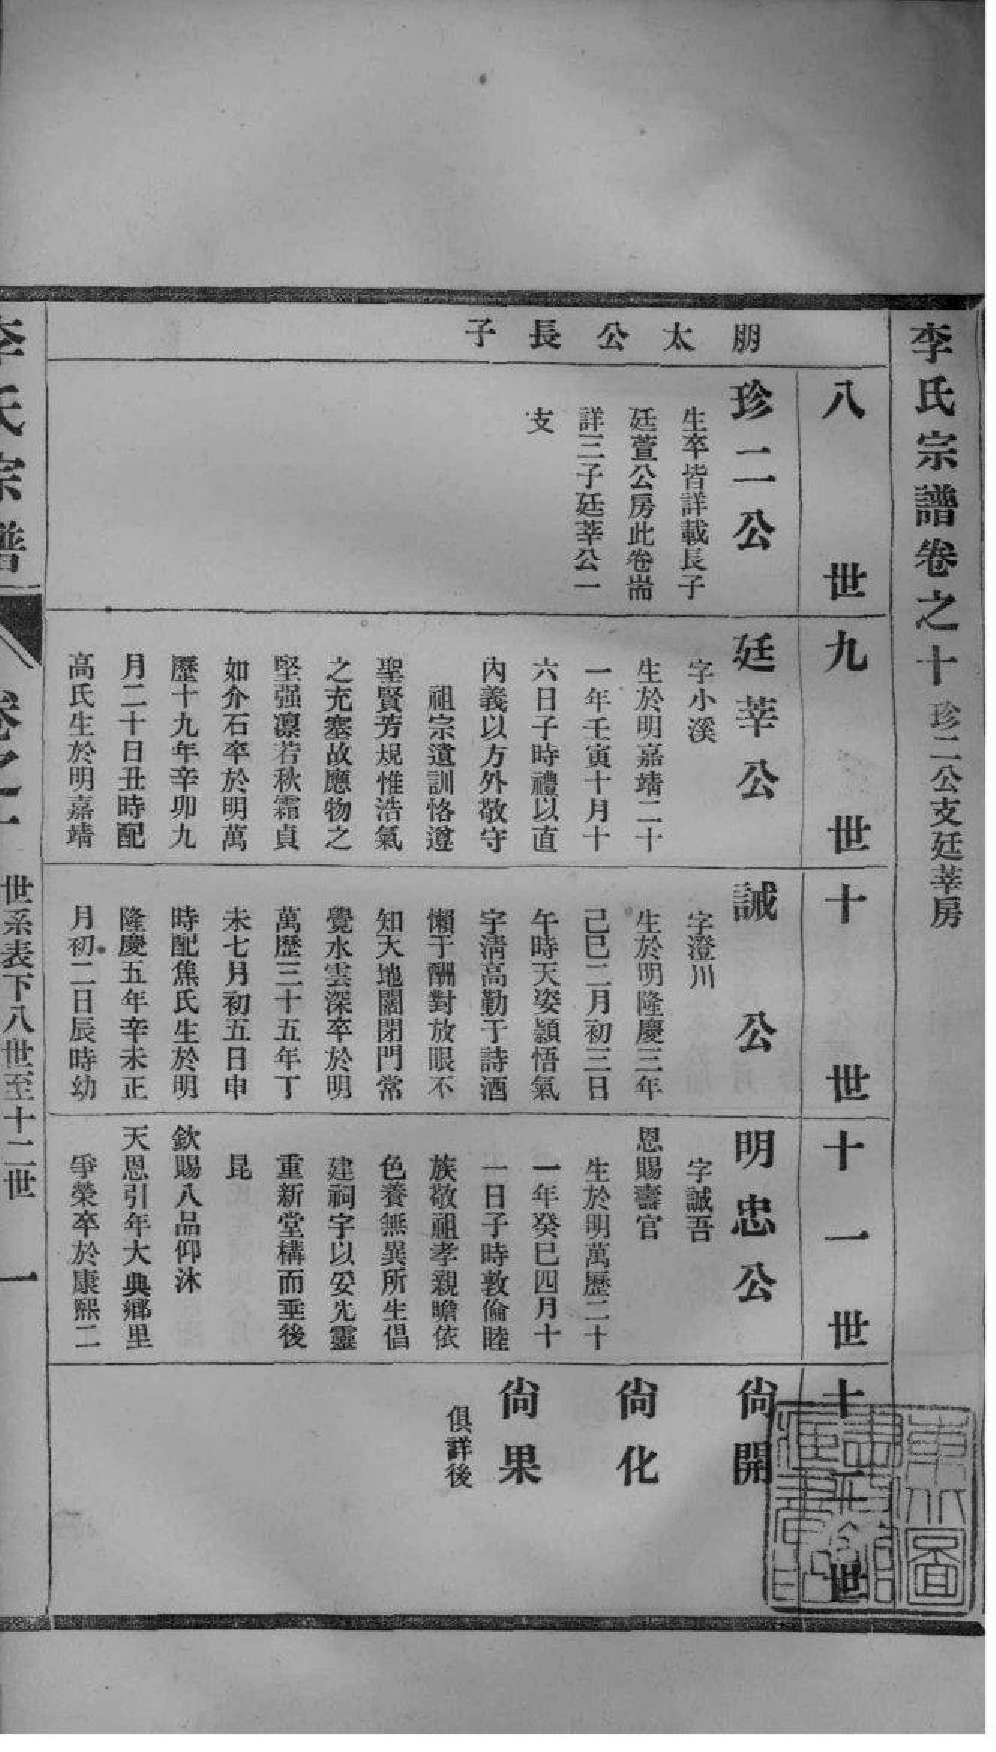 李氏宗譜卷之十 珍二公支廷莘房
八世
九世
十世
十一世
十二世
朋太公長子
珍二公
生卒皆詳載長子
廷萱公房此卷耑
詳三子廷莘公一
支
廷莘公
字小溪
生於明嘉靖二十
一年壬寅十月十
六日子時禮以直
內義以方外敬守
祖宗遺訓恪遵
聖賢芳規惟浩氣
之充塞故應物之
堅强凛若秋霜貞
如介石卒於明萬
歷十九年辛卯九
月二十日丑時配
高氏生於明嘉靖
誠公
字澄川
生於明隆慶三年
己巳二月初三日
午時天姿穎悟氣
宇清高勤于詩酒
懶于酬對放眼不
知天地闊閉門常
覺水雲深卒於明
萬歷三十五年丁
未七月初五日申
時配焦氏生於明
隆慶五年辛未正
月初二日辰時幼
明忠公
字誠吾
恩賜壽官
生於明萬歷二十
一年癸巳四月十
一日子時敦倫睦
族敬祖孝親瞻依
色養無異所生倡
建祠宇以妥先靈
重新堂構而垂後
昆
欽賜八品仰沐
天恩引年大典鄉里
爭榮卒於康熙二
尙開
尙化
尙果
俱詳後
李氏宗譜
卷之十
世系表下八世至十二世
一